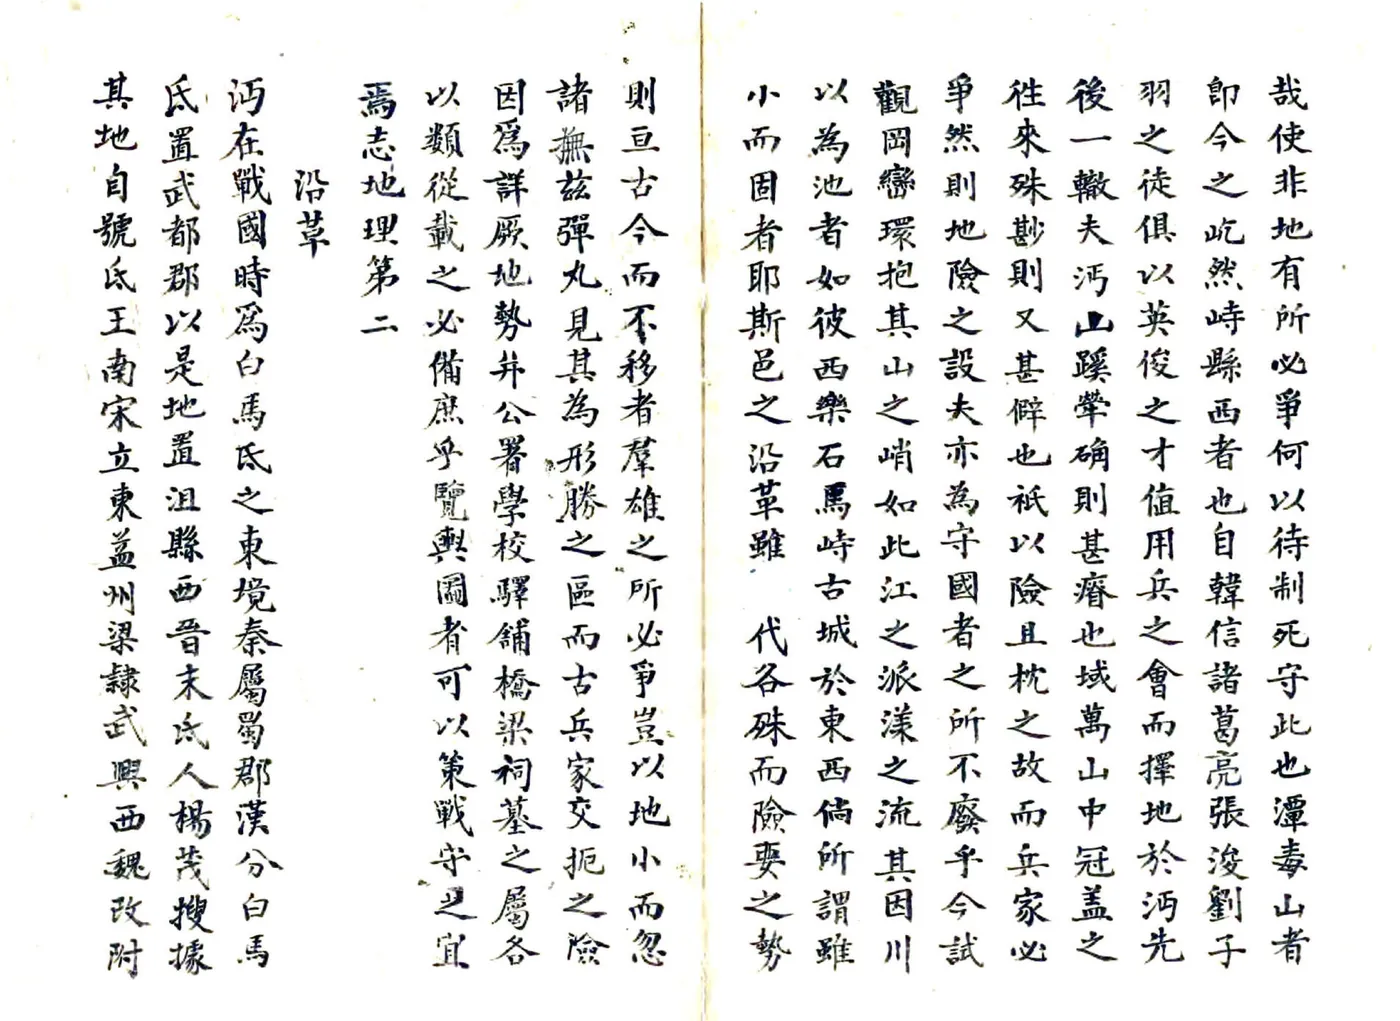 哉使非地有所必爭何以待制死守此也潭毒山者
即今之屹然峙縣西者也自韓信諸葛亮張浚劉子
羽之徒俱以英俊之才值用兵之會而擇地於沔先
後一轍夫沔山蹊犖确則甚瘠也域萬山中冠盖之
徃來殊尠則又甚僻也祇以險且枕之故而兵家必
爭然則地險之設夫亦為守國者之所不廢乎今試
觀岡巒環抱其山之峭如此江之派漾之流其因川
以為池者如彼西樂石馬峙古城於東西倘所謂雖
小而固者耶斯邑之沿革雖 代各殊而險要之勢
則亘古今而不移者羣雄之所必爭豈以地小而忽
諸撫兹彈丸見其為形勝之區而古兵家交扼之險
因爲詳厥地勢并公署學校驛舖橋梁祠墓之屬各
以類從載之必備庶乎覽輿圖者可以策戰守之宜
焉志地理第二
沿革
沔在戰國時爲白馬氐之東境秦屬蜀郡漢分白馬
氐置武都郡以是地置沮縣西晉末氐人楊茂搜據
其地自號氐王南宋立東益州梁隷武興西魏改附